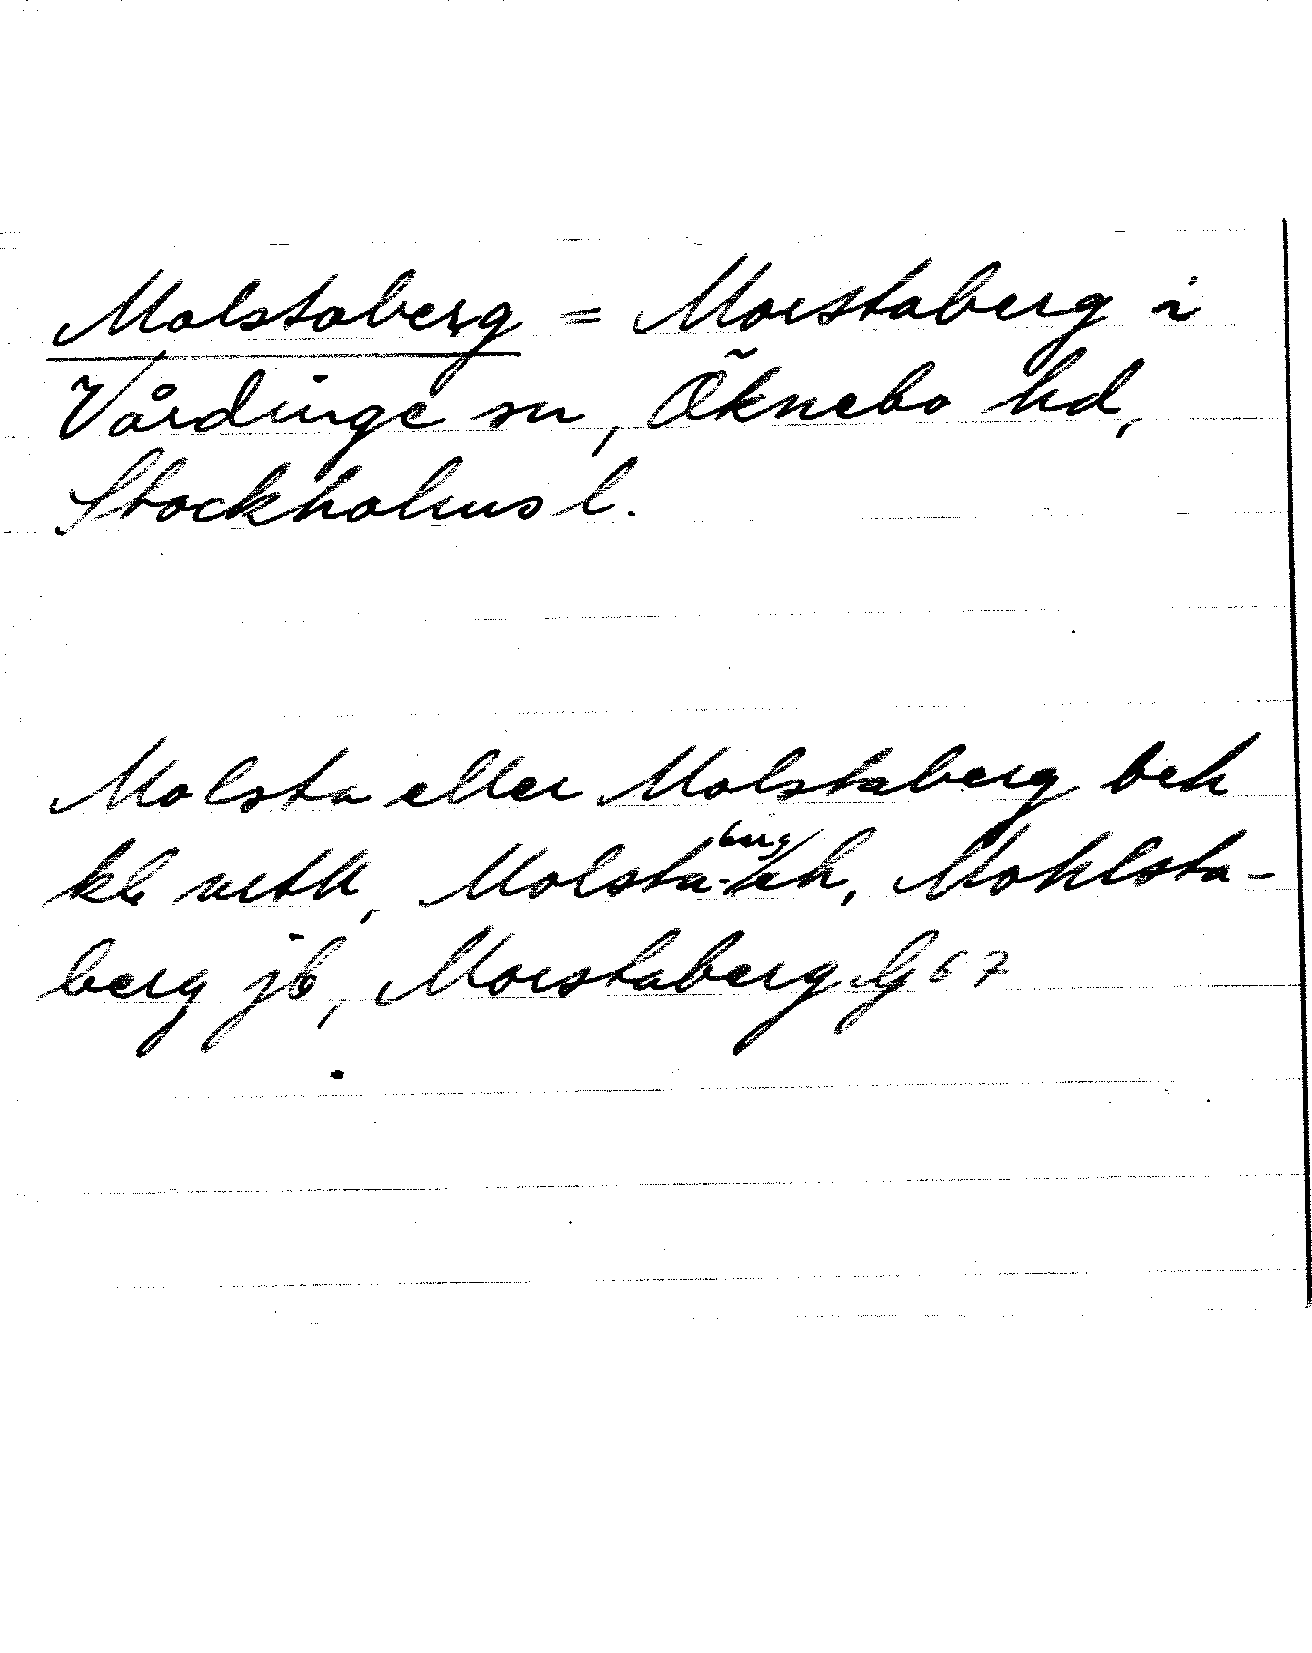 Molstaberg = Morstaberg i
Vårdinge sn, Öknebo hd,
Stockholms l.
Molsta eller Molstaberg bek
Molsta-berg eh, Mohlsta-
berg jb, Morstaberg G 67